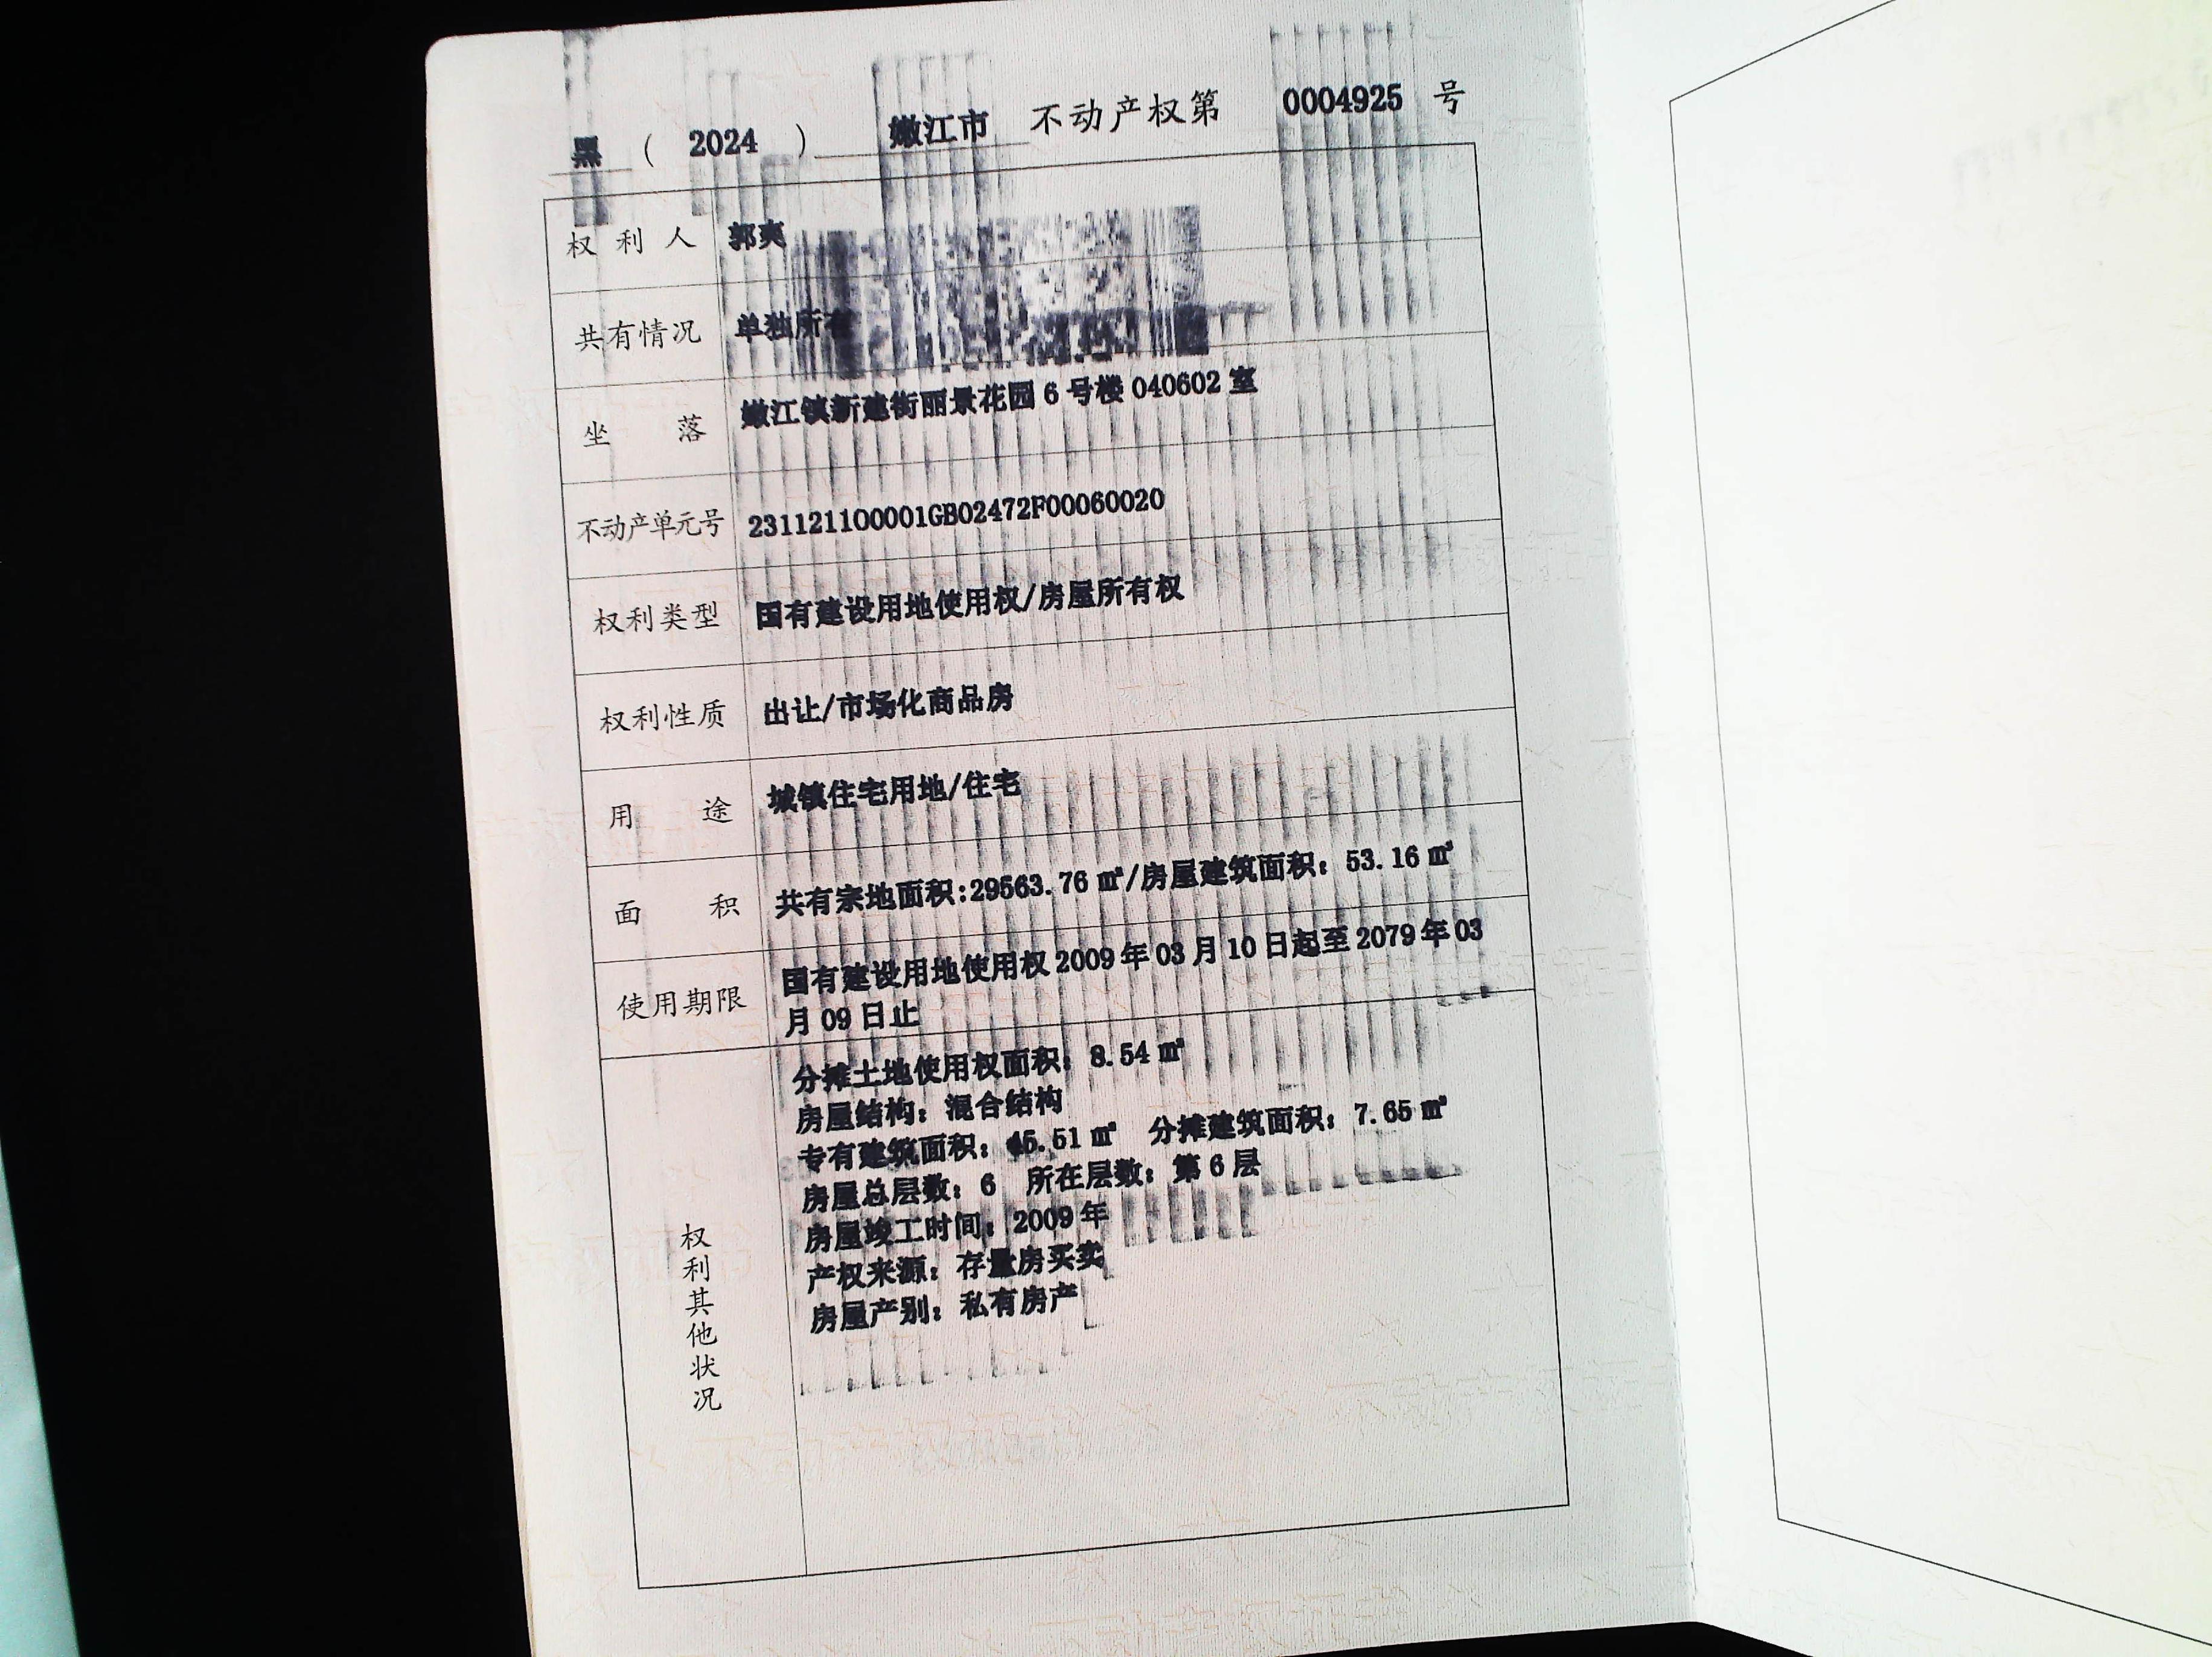 黑 ( 2024 ) 嫩江市 不动产权第 0004925 号
权利人 郭爽
共有情况 单独所有
坐落 嫩江镇新建街丽景花园 6 号楼 040602 室
不动产单元号 231121100001GB02472F00060020
权利类型 国有建设用地使用权/房屋所有权
权利性质 出让/市场化商品房
用途 城镇住宅用地/住宅
面积 共有宗地面积:29563.76 ㎡/房屋建筑面积：53.16 ㎡
使用期限 国有建设用地使用权 2009 年 03 月 10 日起至 2079 年 03
月 09 日止
权利其他状况
分摊土地使用权面积：8.54 ㎡
房屋结构：混合结构
专有建筑面积：45.51 ㎡ 分摊建筑面积：7.65 ㎡
房屋总层数：6 所在层数：第 6 层
房屋竣工时间：2009 年
产权来源：存量房买卖
房屋产别：私有房产